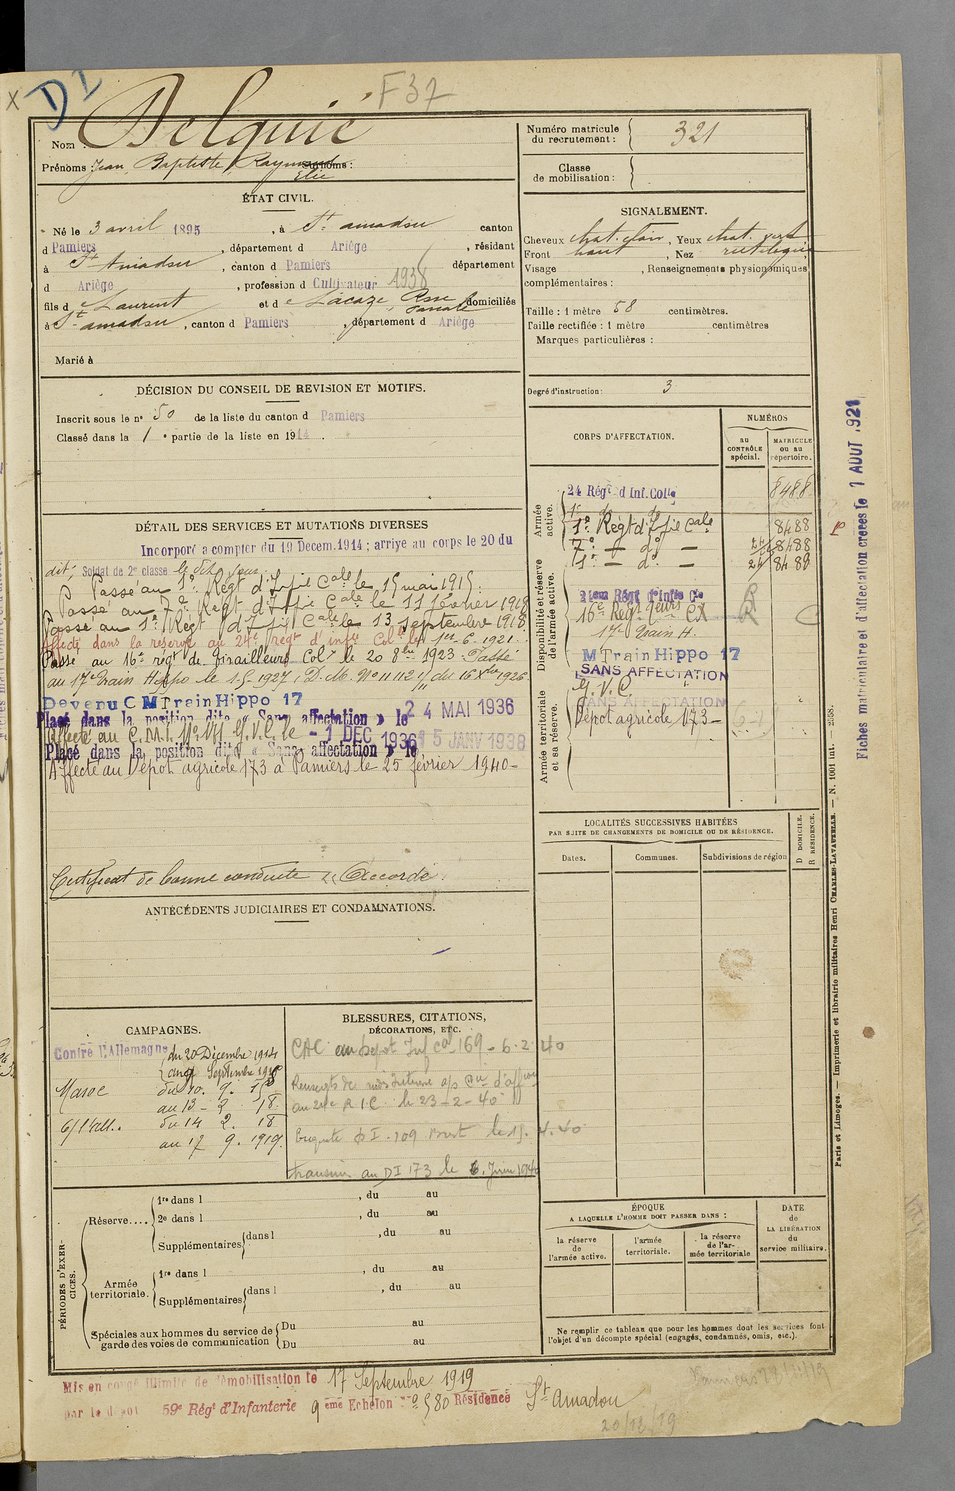 X D I
F 37
Nom Delquié
Prénoms : Jean Baptiste Raymond
Elie
Numéro matricule
du recrutement : 321
Classe
de mobilisation :
ÉTAT CIVIL.
Né le 3 avril 1895, à St amadou canton
d Pamiers, département d Ariège, résidant
à St Amadou, canton d Pamiers département
d Ariège, profession d Cultivateur 1938
fils de Laurent et de Lacaze, Rose domiciliés
à St amadou, canton d Pamiers, département d Ariège
Marié à
SIGNALEMENT.
Cheveux chat. clair, Yeux chat. vert
Front haut, Nez rectiligne
Visage , Renseignements physionomiques
complémentaires :
Taille : 1 mètre 58 centimètres.
Taille rectifiée : 1 mètre centimètres
Marques particulières :
Degré d'instruction : 3
DÉCISION DU CONSEIL DE REVISION ET MOTIFS.
Inscrit sous le n° 50 de la liste du canton d Pamiers
Classé dans la 1e partie de la liste en 1914.
DÉTAIL DES SERVICES ET MUTATIONS DIVERSES
Incorporé a compter du 19 Decem. 1914 ; arrivé au corps le 20 du
dit, Soldat de 2e classe le dit jour.
Passé au 1er Régt d'Infie Cale le 15 mai 1915.
Passé au 7e Régt d'Infie Cale le 11 février 1918
Passé au 1er Régt d'Infie Cale le 13 septembre 1918
Affecté dans la réserve au 24e régt d'infie Cole le 1er 6-1921.
Passé au 16e régt de tirailleurs Colx le 20 8bre 1923. Passé
au 17e train Hippo le 1.5.1927, D.M. No 11112 1/11 du 16 Xbre 1926
Devenu C M Train Hippo 17
Placé dans la position dite « Sans affectation » le 24 MAI 1936
Affecté au C.M.I. No 171 G.V.C. le - 1 DEC 1936
Placé dans la position dite « Sans affectation » le 15 JANV 1938
Affecté au Dépot agricole 173 à Pamiers le 25 février 1940-
Certificat de bonne conduite "Accordé".
CORPS D'AFFECTATION.
NUMÉROS
au
CONTRÔLE
spécial.
MATRICULE
ou au
répertoire.
Armée
active.
24 Régt d Inf. Colle 8488
1er Régt d'Infie Cale 8488
7e - do - 8488
1er - do - 8488
Disponibilité et réserve
de l'armée active.
24em Régt d'infie Cle R
16e Régt Tleurs CX R C
17e Train H.
M Train Hippo 17
SANS AFFECTATION
Armée territoriale
et sa réserve.
G.V.C.
SANS AFFECTATION
Dépot agricole 173-
Fiches matriculaire et d'affectation créées le 1 AOUT 1921
LOCALITÉS SUCCESSIVES HABITÉES
PAR SUITE DE CHANGEMENTS DE DOMICILE OU DE RÉSIDENCE.
D DOMICILE.
R RÉSIDENCE.
Dates. Communes. Subdivisions de région
ANTÉCÉDENTS JUDICIAIRES ET CONDAMNATIONS.
CAMPAGNES.
Contre l'Allemagne du 20 Décembre 1914
au 9 Septembre 1915
Maroc du 10. 9. 15
au 13 - 2 18.
c/ l'all. du 14 2. 18
au 17 9. 1919.
BLESSURES, CITATIONS,
DÉCORATIONS, ETC.
CAC au Depot Inf Col 169 - 6-2-40
au 24e R I C le 23-2-40
le 15. 4. 40
transmis au DI 173 le 6. Juin 1940
PÉRIODES D'EXERCICES.
Réserve....
1re dans l , du au
2e dans l , du au
Supplémentaires dans l , du au
Armée
territoriale.
1re dans l , du au
Supplémentaires dans l , du au
Spéciales aux hommes du service de
garde des voies de communication
Du au
Du au
ÉPOQUE
A LAQUELLE L'HOMME DOIT PASSER DANS :
la réserve
de
l'armée active.
l'armée
territoriale.
la réserve
de l'armée territoriale
DATE
de
LA LIBÉRATION
du
service militaire.
Ne remplir ce tableau que pour les hommes dont les services font
l'objet d'un décompte spécial (engagés, condamnés, omis, etc.).
Paris et Limoges. — Imprimerie et librairie militaires Henri CHARLES-LAVAUZELLE. — N. 1001 int. — 2958.
Mis en congé illimité de démobilisation le 17 Septembre 1919
par le dépôt 59e Régt d'Infanterie 9eme Echelon No 580 Résidence St Amadou
20/12/19